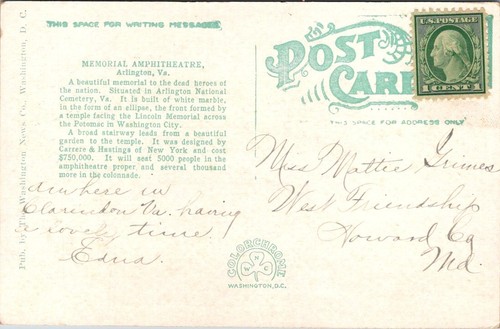 THIS SPACE FOR WRITING MESSAGES
MEMORIAL AMPHITHEATRE,
Arlington, Va.
A beautiful memorial to the dead heroes of
the nation. Situated in Arlington National
Cemetery, Va. It is built of white marble,
in the form of an ellipse, the front formed by
a temple facing the Lincoln Memorial across
the Potomac in Washington City.
A broad stairway leads from a beautiful
garden to the temple. It was designed by
Carrere & Hastings of New York and cost
$750,000. It will seat 5000 people in the
amphitheatre proper and several thousand
more in the colonnade.
Am here in
Clarendon Va. having
a lovely time.
Edna.
Pub. by The Washington News Co., Washington, D. C.
COLORCHROME
WASHINGTON, D.C.
POST
CARD
THIS SPACE FOR ADDRESS ONLY
U.S. POSTAGE
1 CENT 1
Miss Mattie Grimes
West Friendship
Howard Co
Md.